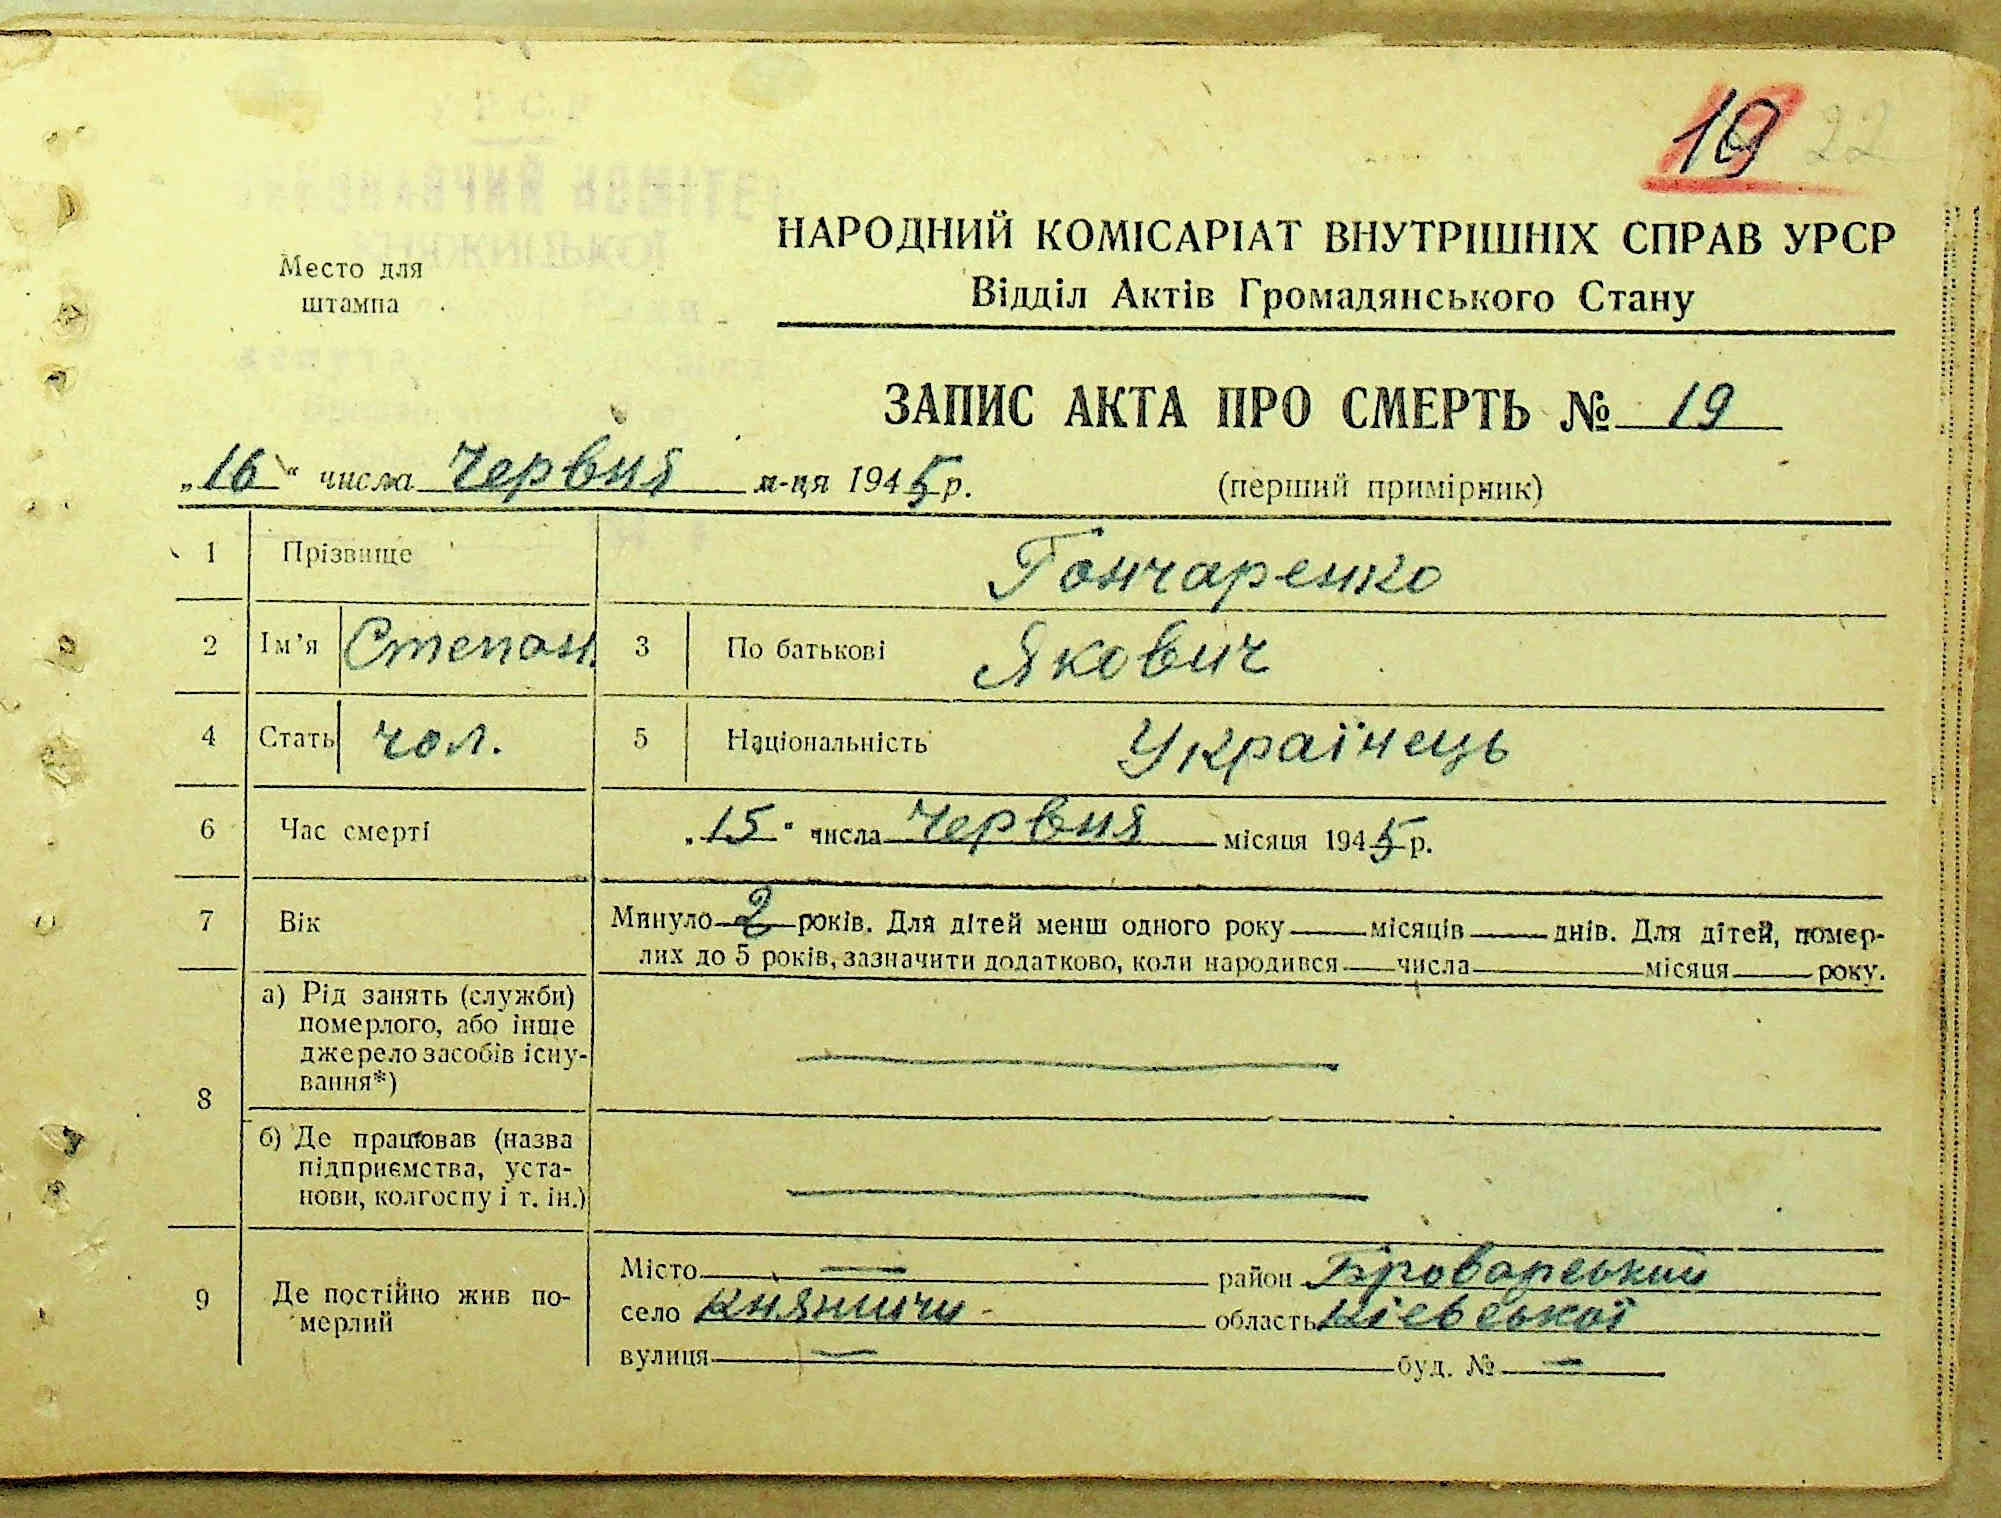 19 22
НАРОДНИЙ КОМІСАРІАТ ВНУТРІШНІХ СПРАВ УРСР
Место для
штампа
Відділ Актів Громадянського Стану
ЗАПИС АКТА ПРО СМЕРТЬ № 19
„16“ числа Червня м-ця 1945 р. (перший примірник)
1 Прізвище Гончаренко
2 Ім’я Степан 3 По батькові Якович
4 Стать чол. 5 Національність Українець
6 Час смерті „15“ числа Червня місяця 1945 р.
7 Вік Минуло 2 років. Для дітей менш одного року місяців днів. Для дітей, помер-
лих до 5 років, зазначити додатково, коли народився числа місяця року.
8 а) Рід занять (служби)
померлого, або інше
джерело засобів існу-
вання*)
б) Де працював (назва
підприємства, уста-
нови, колгоспу і т. ін.)
9 Де постійно жив по-
мерлий
Місто — район Броварський
село Княжичи область Кіевської
вулиця — буд. № —